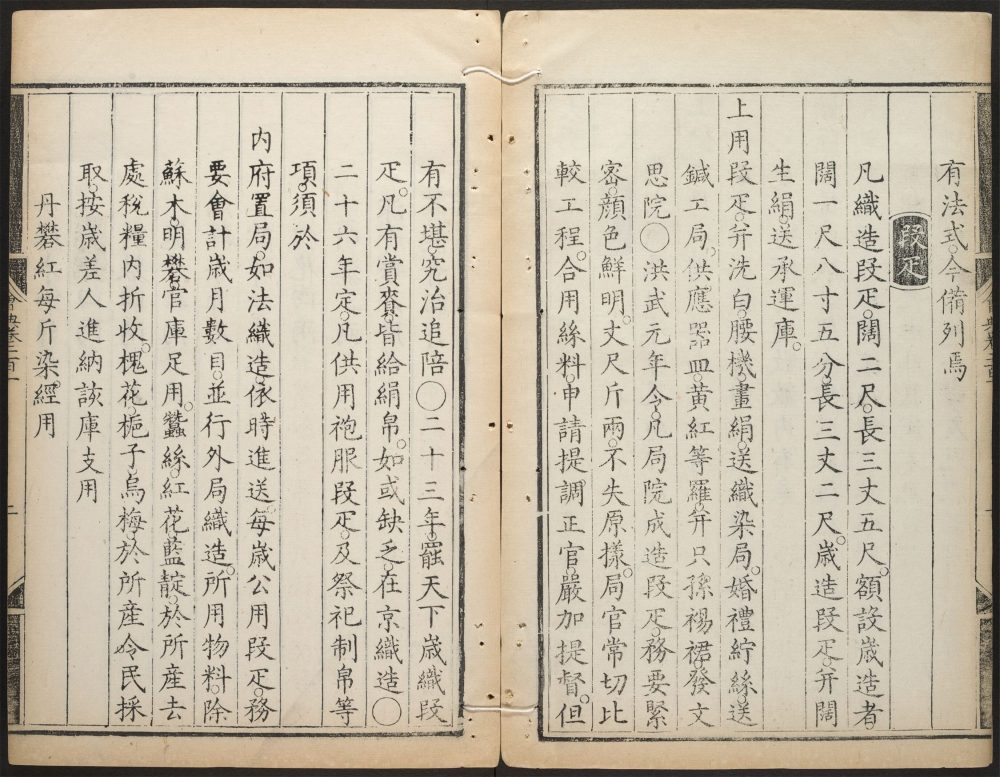 有法式今備列焉
段疋
凡織造段疋。闊二尺。長三丈五尺。額設歲造者。
闊一尺八寸五分。長三丈二尺。歲造段疋。幷闊
生絹。送承運庫。
上用段疋。幷洗白。腰機畫絹。送織染局。婚禮紵絲。送
鍼工局。供應器皿。黃紅等羅。幷只孫裼裙。發文
思院〇洪武元年令。凡局院成造段疋。務要緊
密。顏色鮮明。丈尺斤兩。不失原樣。局官常切比
較工程。合用絲料。申請提調正官。嚴加提督。但
有不堪究治追陪〇二十三年。罷天下歲織段
疋。凡有賞賚。皆給絹帛。如或缺乏。在京織造〇
二十六年定。凡供用袍服段疋。及祭祀制帛等
項。須於
內府置局。如法織造。依時進送。每歲公用段疋。務
要會計歲月數目。並行外局織造。所用物料。除
蘇木。明礬。官庫足用。蠶絲。紅花。藍靛。於所產去
處稅糧內折收。槐花。梔子。烏梅。於所產令民採
取。按歲差人進納該庫支用
丹礬紅每斤染。經用
會典卷二百一
二